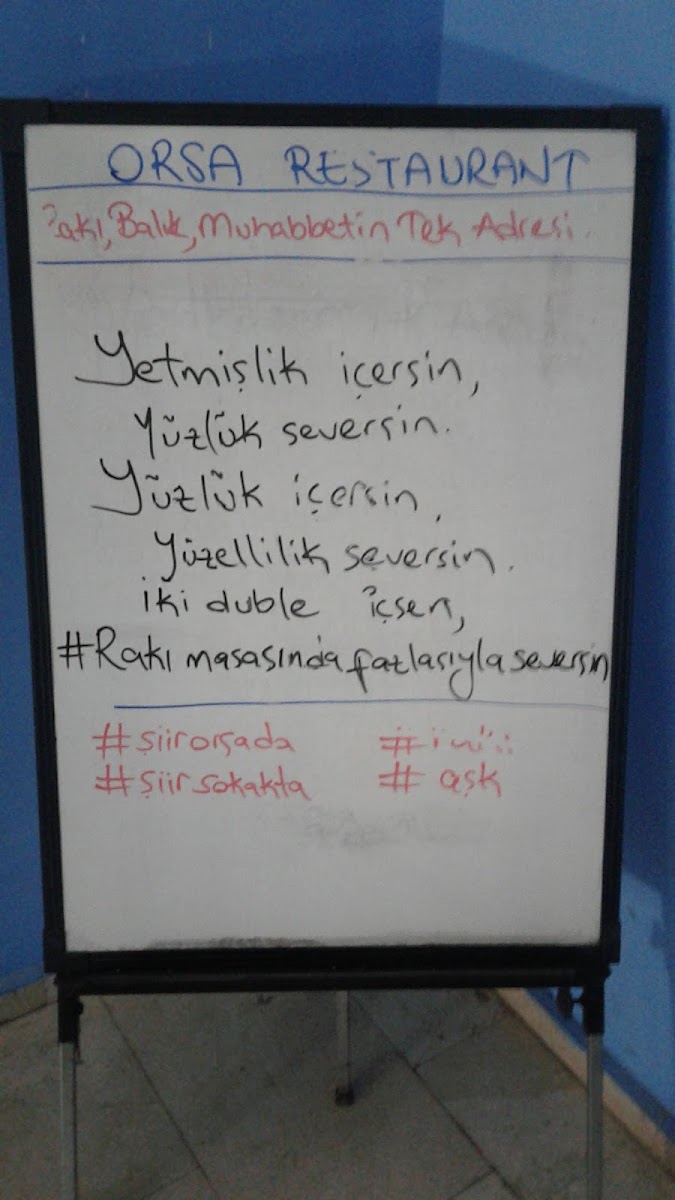 ORSA RESTAURANT
Balık, Muhabbetin Tek Adresi.
Yetmişlik içersin,
Yüzlük seversin.
Yüzlük içersin,
Yüzellilik seversin.
İki duble içsen,
#Rakı masasında fazlasıyla seversin
#şiirorsada
#şiirsokakta # aşk